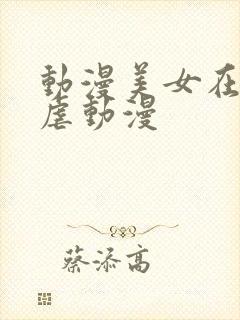 動漫美女在
虐動漫
蔡添高